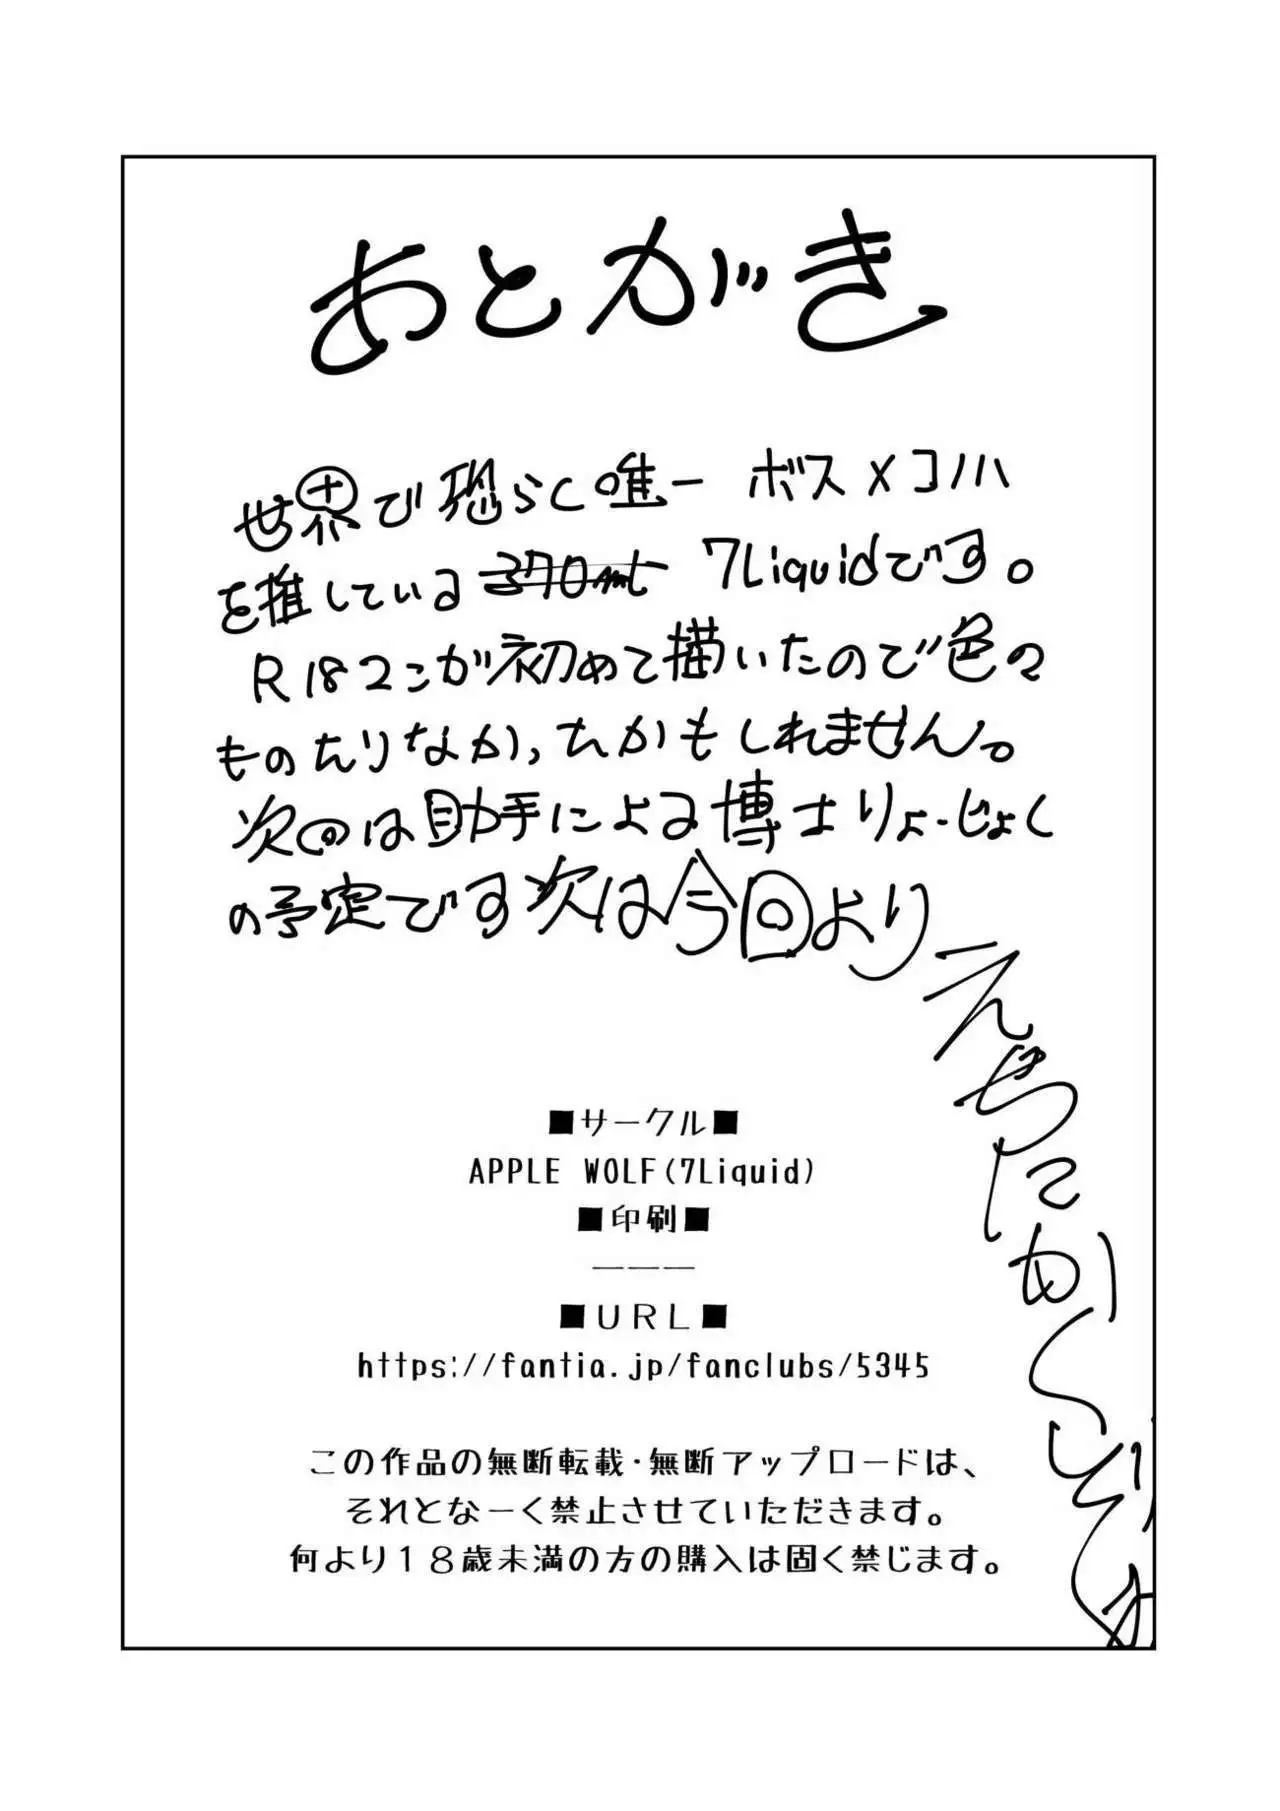 あとがき
世界で恐らく唯一 ボス×コノハ
を推している 370ml 7Liquidです。
R18マンガ初めて描いたので色々
ものたりなかったかもしれません。
次のは助手による博士りょーじょく
の予定です次は今回より
えちちにかくぞ
■サークル■
APPLE WOLF(7Liquid)
■印刷■
ーーー
■URL■
https://fantia.jp/fanclubs/5345
この作品の無断転載・無断アップロードは、
それとなーく禁止させていただきます。
何より１８歳未満の方の購入は固く禁じます。